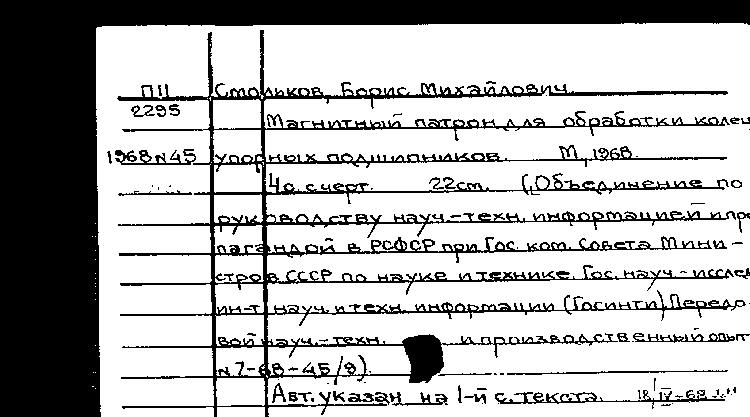 П11 Смольков, Борис Михайлович.
2295
Магнитный патрон для обработки колец
1968 N45 упорных подшипников. М., 1968.
4 с. с черт. 22 см. (Объединение по
руководству науч.-техн. информацией и про
пагандой в РСФСР при Гос. ком. Совета Мини-
стров СССР по науке и технике. Гос. науч.-исслед
ин-т науч. и техн. информации (Госинти). Передо-
вой науч.-техн. и производственный опыт
N 7-68-45/8)
Авт. указан на 1-й с. текста. 18/IV-68